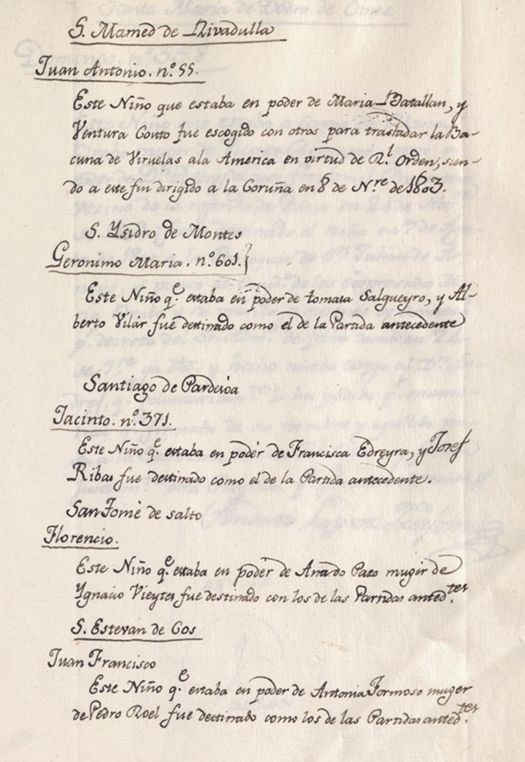 S. Mamed de Rivadulla
Juan Antonio. nº 55.
Este Niño que estaba en poder de Maria Batallan, y
Ventura Couto fue escogido con otros para trasladar la Ba-
cuna de Viruelas ala America en virtud de Rl. Orden, sien-
do a este fin dirigido a la Coruña en 8 de Nre. de 1803.
S. Ysidro de Montes
Geronimo Maria. nº 601.
Este Niño qe. estaba en poder de tomasa Salgueyro, y Al-
berto Vilár fue destinado como el de la Partida antecedente
Santiago de Pardesoa
Jacinto. nº 371.
Este Niño qe. estaba en podér de Francisca Edreyra, y Josef
Ribas fue destinado como el de la Partida antecedente.
San Tomé de salto
Florencio.
Este Niño qe. estaba en podér de Ana do Pazo muger de
Ygnacio Vieytes, fue destinado con los de las Partidas anted.tes
S. Estevan de Cos
Juan Francisco
Este Niño qe. estaba en podér de Antonia Formoso muger
de Pedro Roel fue destinado como los de las Partidas anted.tes